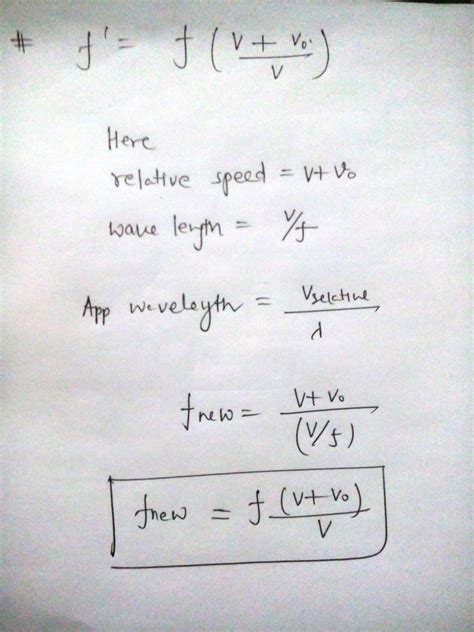 # f' = f ( V + Vo. / V )
Here
relative speed = V+ Vo
wave length = V/f
App waveleyth = Vrelative / λ
fnew = V+ Vo / (V/f)
fnew = f (V+ Vo) / V